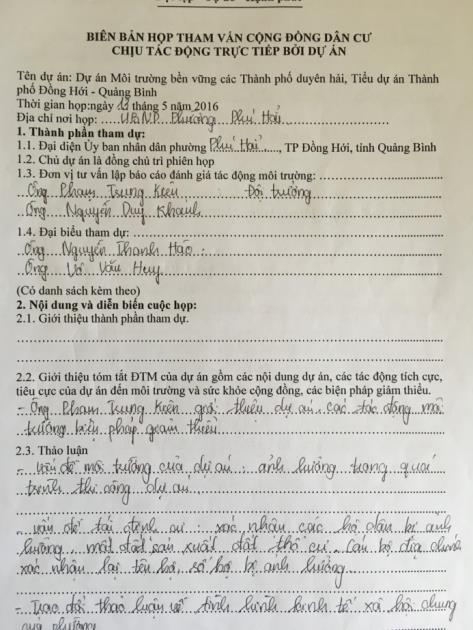 BIÊN BẢN HỌP THAM VẤN CỘNG ĐỒNG DÂN CƯ
CHỊU TÁC ĐỘNG TRỰC TIẾP BỞI DỰ ÁN
Tên dự án: Dự án Môi trường bền vững các Thành phố duyên hải, Tiểu dự án Thành
phố Đồng Hới - Quảng Bình
Thời gian họp:ngày tháng 5 năm 2016
Địa chỉ nơi họp: UBND Phường Phú Hải
1. Thành phần tham dự:
1.1. Đại diện Ủy ban nhân dân phường Phú Hải, TP Đồng Hới, tỉnh Quảng Bình
1.2. Chủ dự án là đồng chủ trì phiên họp
1.3. Đơn vị tư vấn lập báo cáo đánh giá tác động môi trường:
Ông Phạm Trung Kiên : Đội trưởng
Ông Nguyễn Duy Khanh
1.4. Đại biểu tham dự:
Ông Nguyễn Thanh Hào
Ông Võ Văn Huy
(Có danh sách kèm theo)
2. Nội dung và diễn biến cuộc họp:
2.1. Giới thiệu thành phần tham dự.
2.2. Giới thiệu tóm tắt ĐTM của dự án gồm các nội dung dự án, các tác động tích cực,
tiêu cực của dự án đến môi trường và sức khỏe cộng đồng, các biện pháp giảm thiểu.
- Ông Phạm Trung Kiên giới thiệu dự án, các tác động môi
trường biện pháp giảm thiểu
2.3. Thảo luận
- Vấn đề môi trường của dự án : ảnh hưởng trong quá
trình thi công dự án
- Vấn đề tái định cư : xác nhận các hộ dân bị ảnh
hưởng mất đất sản xuất đất thổ cư. Cán bộ địa chính
xác nhận lại tên hộ, số hộ bị ảnh hưởng
- Trao đổi thảo luận về tình hình kinh tế xã hội chung
của phường